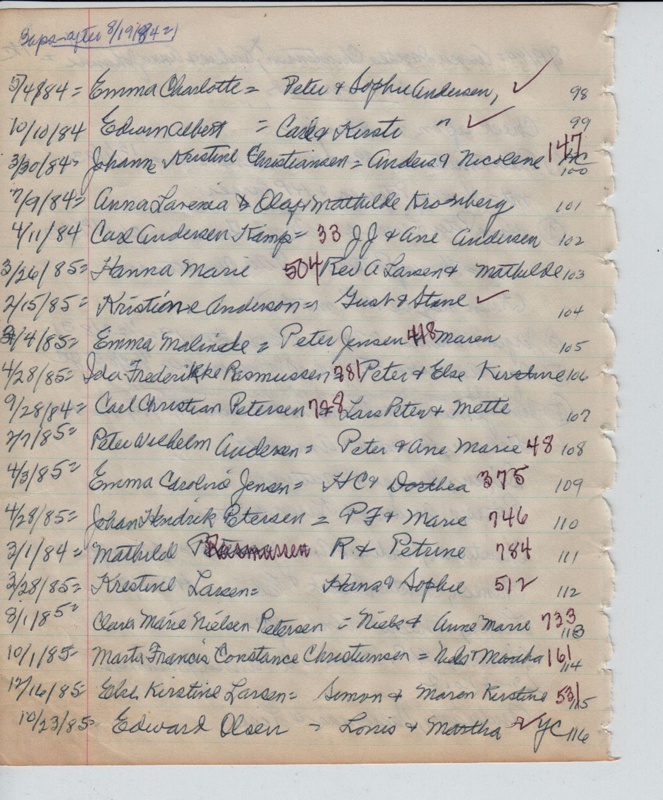 Baps after 8/19/84
5/4/84 = Emma Charlotte = Peter & Sophie Andersen, ✓ 98
10/10/84 Edwin Albert = Carl & Kirsti " ✓ 99
3/30/84 = Johann Kristine Christiansen = Anders & Nicolene 147 100
7/9/84 = Anna Larenca & Olaf & Mathilde Kronberg 101
4/11/84 Carl Andersen Kamp = 33 JJ & Ane Andersen 102
3/26/85 = Hanna Marie 504 Rev A Larsen & Mathilde 103
2/15/85 = Kristine Anderson = Gust & Stane ✓ 104
/4/85 = Emma Malinde = Peter Jensen 418 Maren 105
4/28/85 = Ida Frederikke Rasmussen 781 Peter & Else Kirstine 106
9/28/84 = Carl Christian Petersen 728 Lars Peter & Mette 107
2/7/85 = Peter Wilhelm Andersen = Peter & Ane Marie 48 108
4/3/85 = Emma Caroline Jensen = HC & Dorthea 375 109
4/28/85 = Johan Hendrick Petersen = PF & Marie 746 110
3/1/84 = Mathilde Rasmussen R & Petrine 784 111
3/28/85 = Krestine Larsen = Hans & Sophie 512 112
8/1/85 = Clara Marie Nielsen Petersen = Niels & Anne Marie 733 113
10/1/85 = Marta Francis Constance Christiansen = Niels & Marika 161 114
12/16/85 = Else Kirstine Larsen = Simon & Maren Kirstine 531 115
10/23/85 = Edward Olsen = Louis & Martha ✓ YC 116